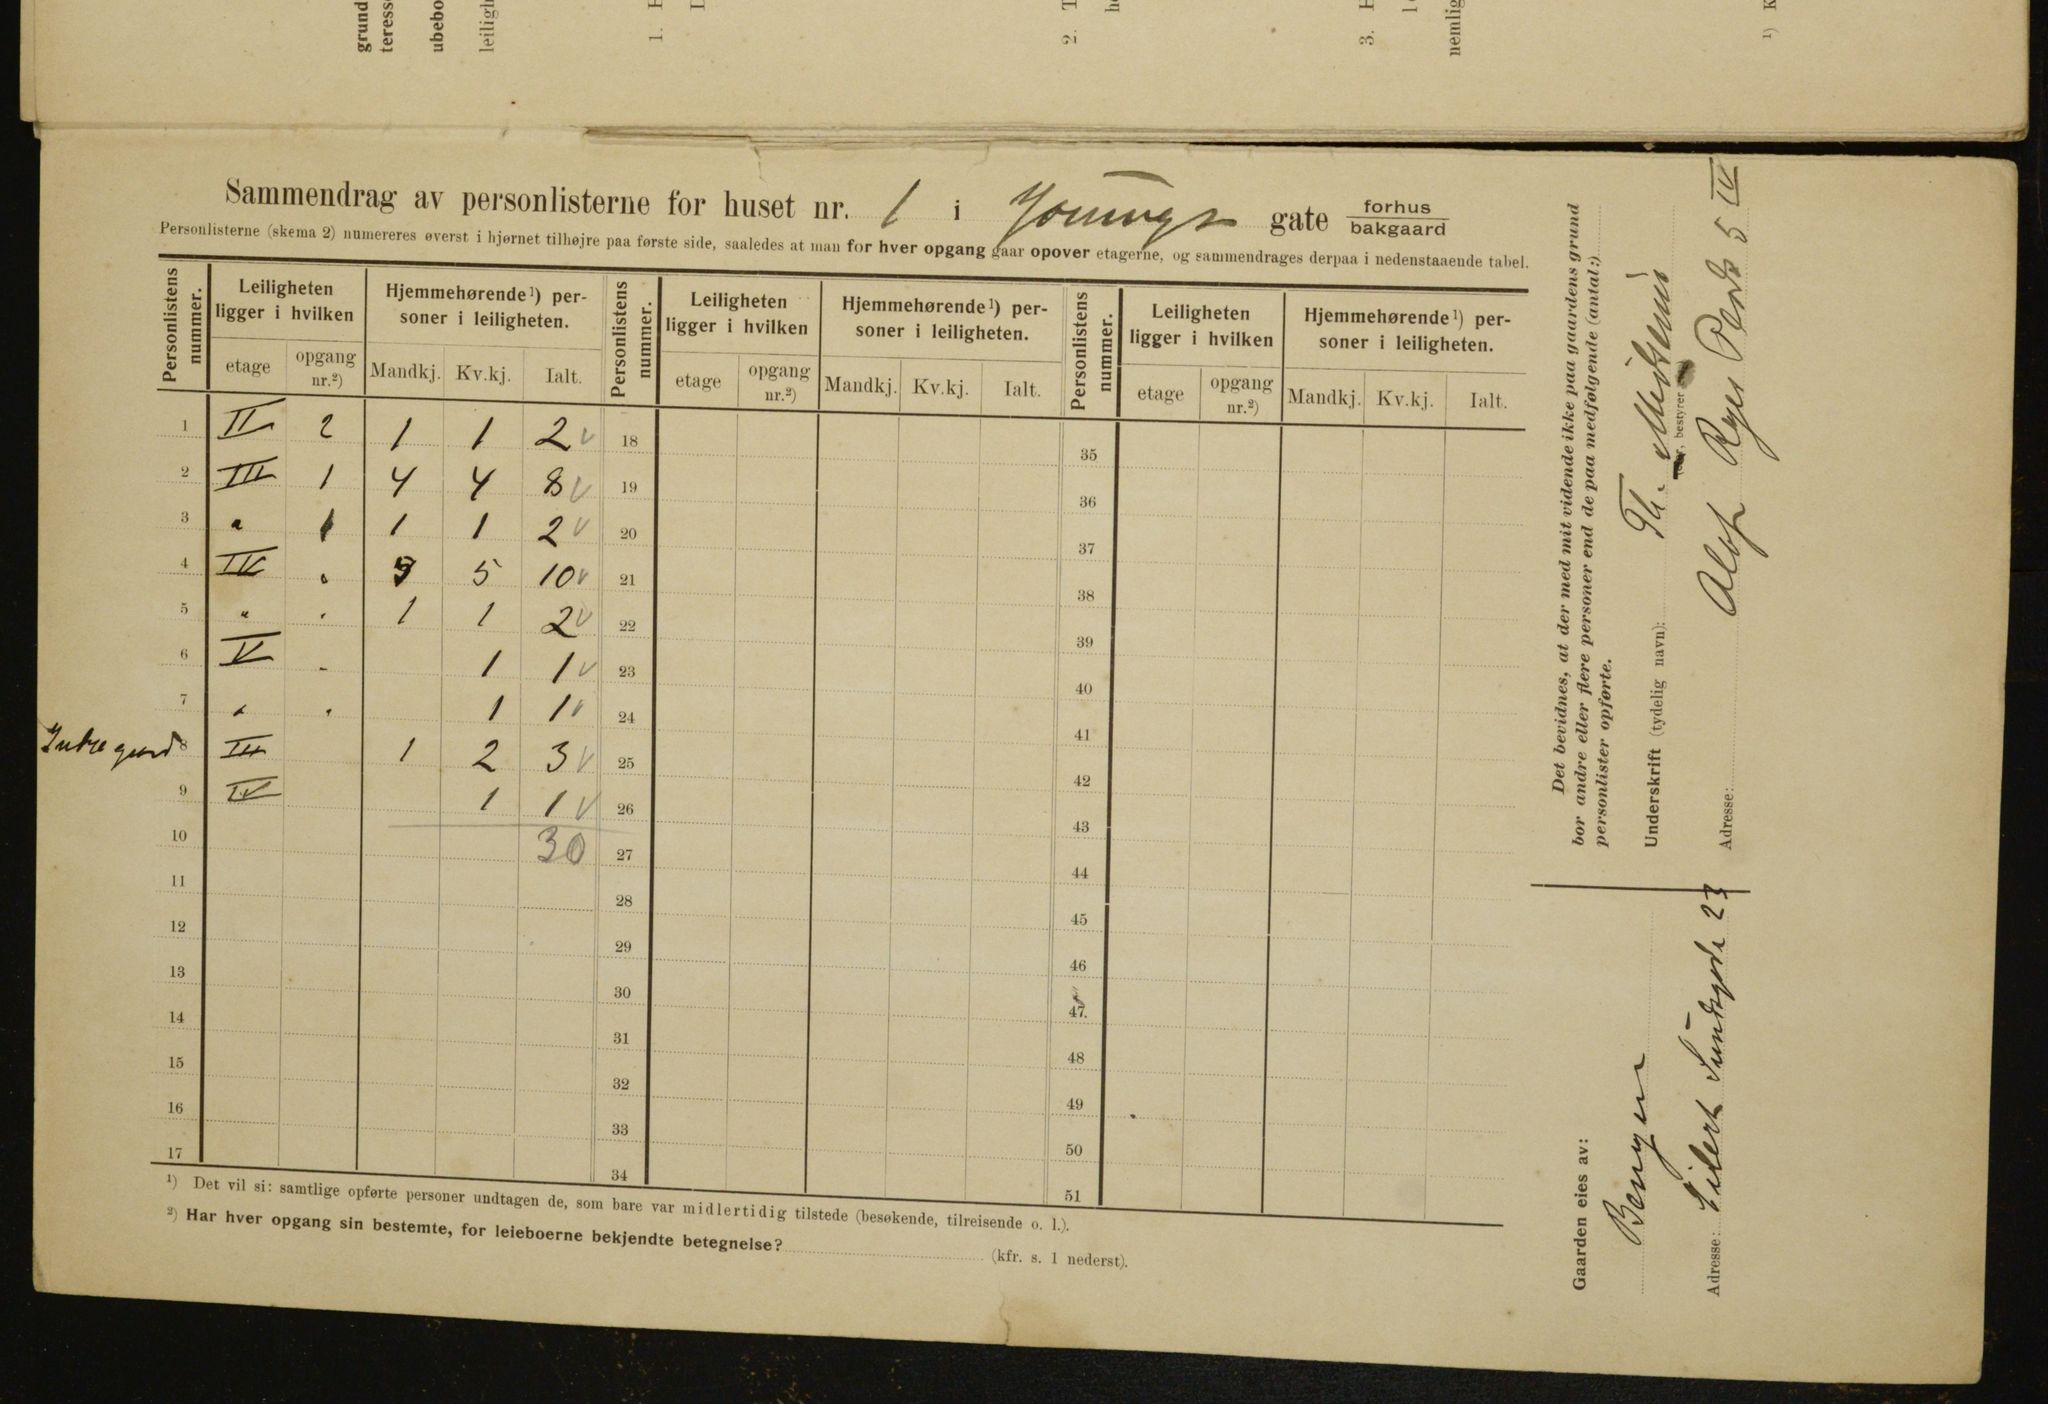 grund
teresse
ubebo
leiligh
1. H
2. T
3. H
nemlig
¹) K
Sammendrag av personlisterne for huset nr. 1 i Youngs gate forhus/bakgaard
Personlisterne (skema 2) numereres øverst i hjørnet tilhøjre paa første side, saaledes at man for hver opgang gaar opover etagerne, og sammendrages derpaa i nedenstaaende tabel.
Personlistens nummer. Leiligheten ligger i hvilken Hjemmehørende¹) personer i leiligheten. Personlistens nummer. Leiligheten ligger i hvilken Hjemmehørende¹) personer i leiligheten. Personlistens nummer. Leiligheten ligger i hvilken Hjemmehørende¹) personer i leiligheten.
etage opgang nr.²) Mandkj. Kv.kj. Ialt. etage opgang nr.²) Mandkj. Kv.kj. Ialt. etage opgang nr.²) Mandkj. Kv.kj. Ialt.
1 II 2 1 1 2 √ 18 35
2 III 1 4 4 8 √ 19 36
3 " 1 1 1 2 √ 20 37
4 IV " 5 5 10 √ 21 38
5 " " 1 1 2 √ 22 39
6 V " 1 1 √ 23 40
7 " " 1 1 √ 24 41
Indre gaard 8 III 1 2 3 √ 25 42
9 IV 1 1 √ 26 43
10 30 27 44
11 28 45
12 29 46
13 30 47.
14 31 48
15 32 49
16 33 50
17 34 51
¹) Det vil si: samtlige opførte personer undtagen de, som bare var midlertidig tilstede (besøkende, tilreisende o. l.).
²) Har hver opgang sin bestemte, for leieboerne bekjendte betegnelse? (kfr. s. 1 nederst).
Det bevidnes, at der med mit vidende ikke paa gaardens grund
bor andre eller flere personer end de paa medfølgende (antal:)
personlister opførte.
Underskrift (tydelig navn): Th.
, bestyrer
Adresse: Olaf Ryes Plads 5 IV
Gaarden eies av:
Adresse: Eilert Sundtsgade 23